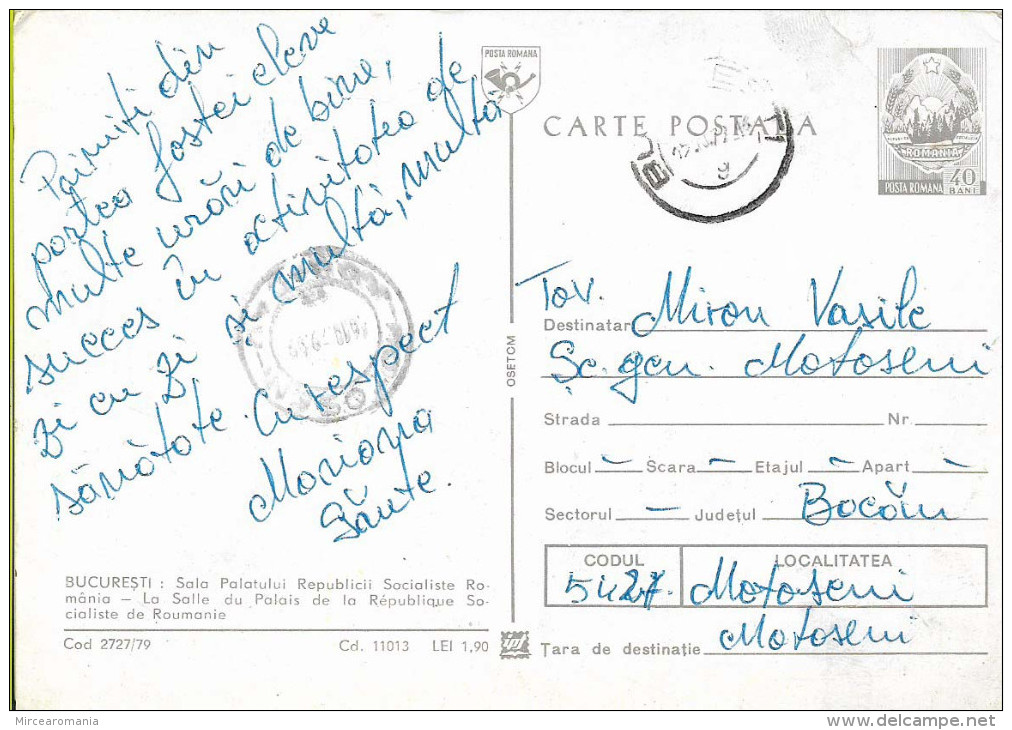 Primiti din
partea fostei eleve
multe urări de bine,
succes în activitatea de
zi cu zi și multă, multă
sănătate. Cu respect
Mariana
Sănte.
BUCUREȘTI : Sala Palatului Republicii Socialiste Ro-
mânia – La Salle du Palais de la République So-
cialiste de Roumanie
Cod 2727/79 Cd. 11013 LEI 1,90
OSETCM
POSTA ROMANA
CARTE POSTALA
ROMANIA
POSTA ROMANA 40 BANI
Tov.
Destinatar Miron Vasile
Șc. gen. Motoseni
Strada Nr.
Blocul – Scara – Etajul – Apart –
Sectorul – Județul Bacău
CODUL LOCALITATEA
5427 Motoseni
Motoseni
Țara de destinație
Mircearomania
delcampe.net